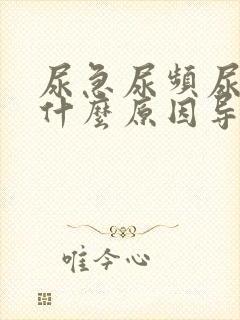 尿急尿頻尿
什麼原因导
唯今心